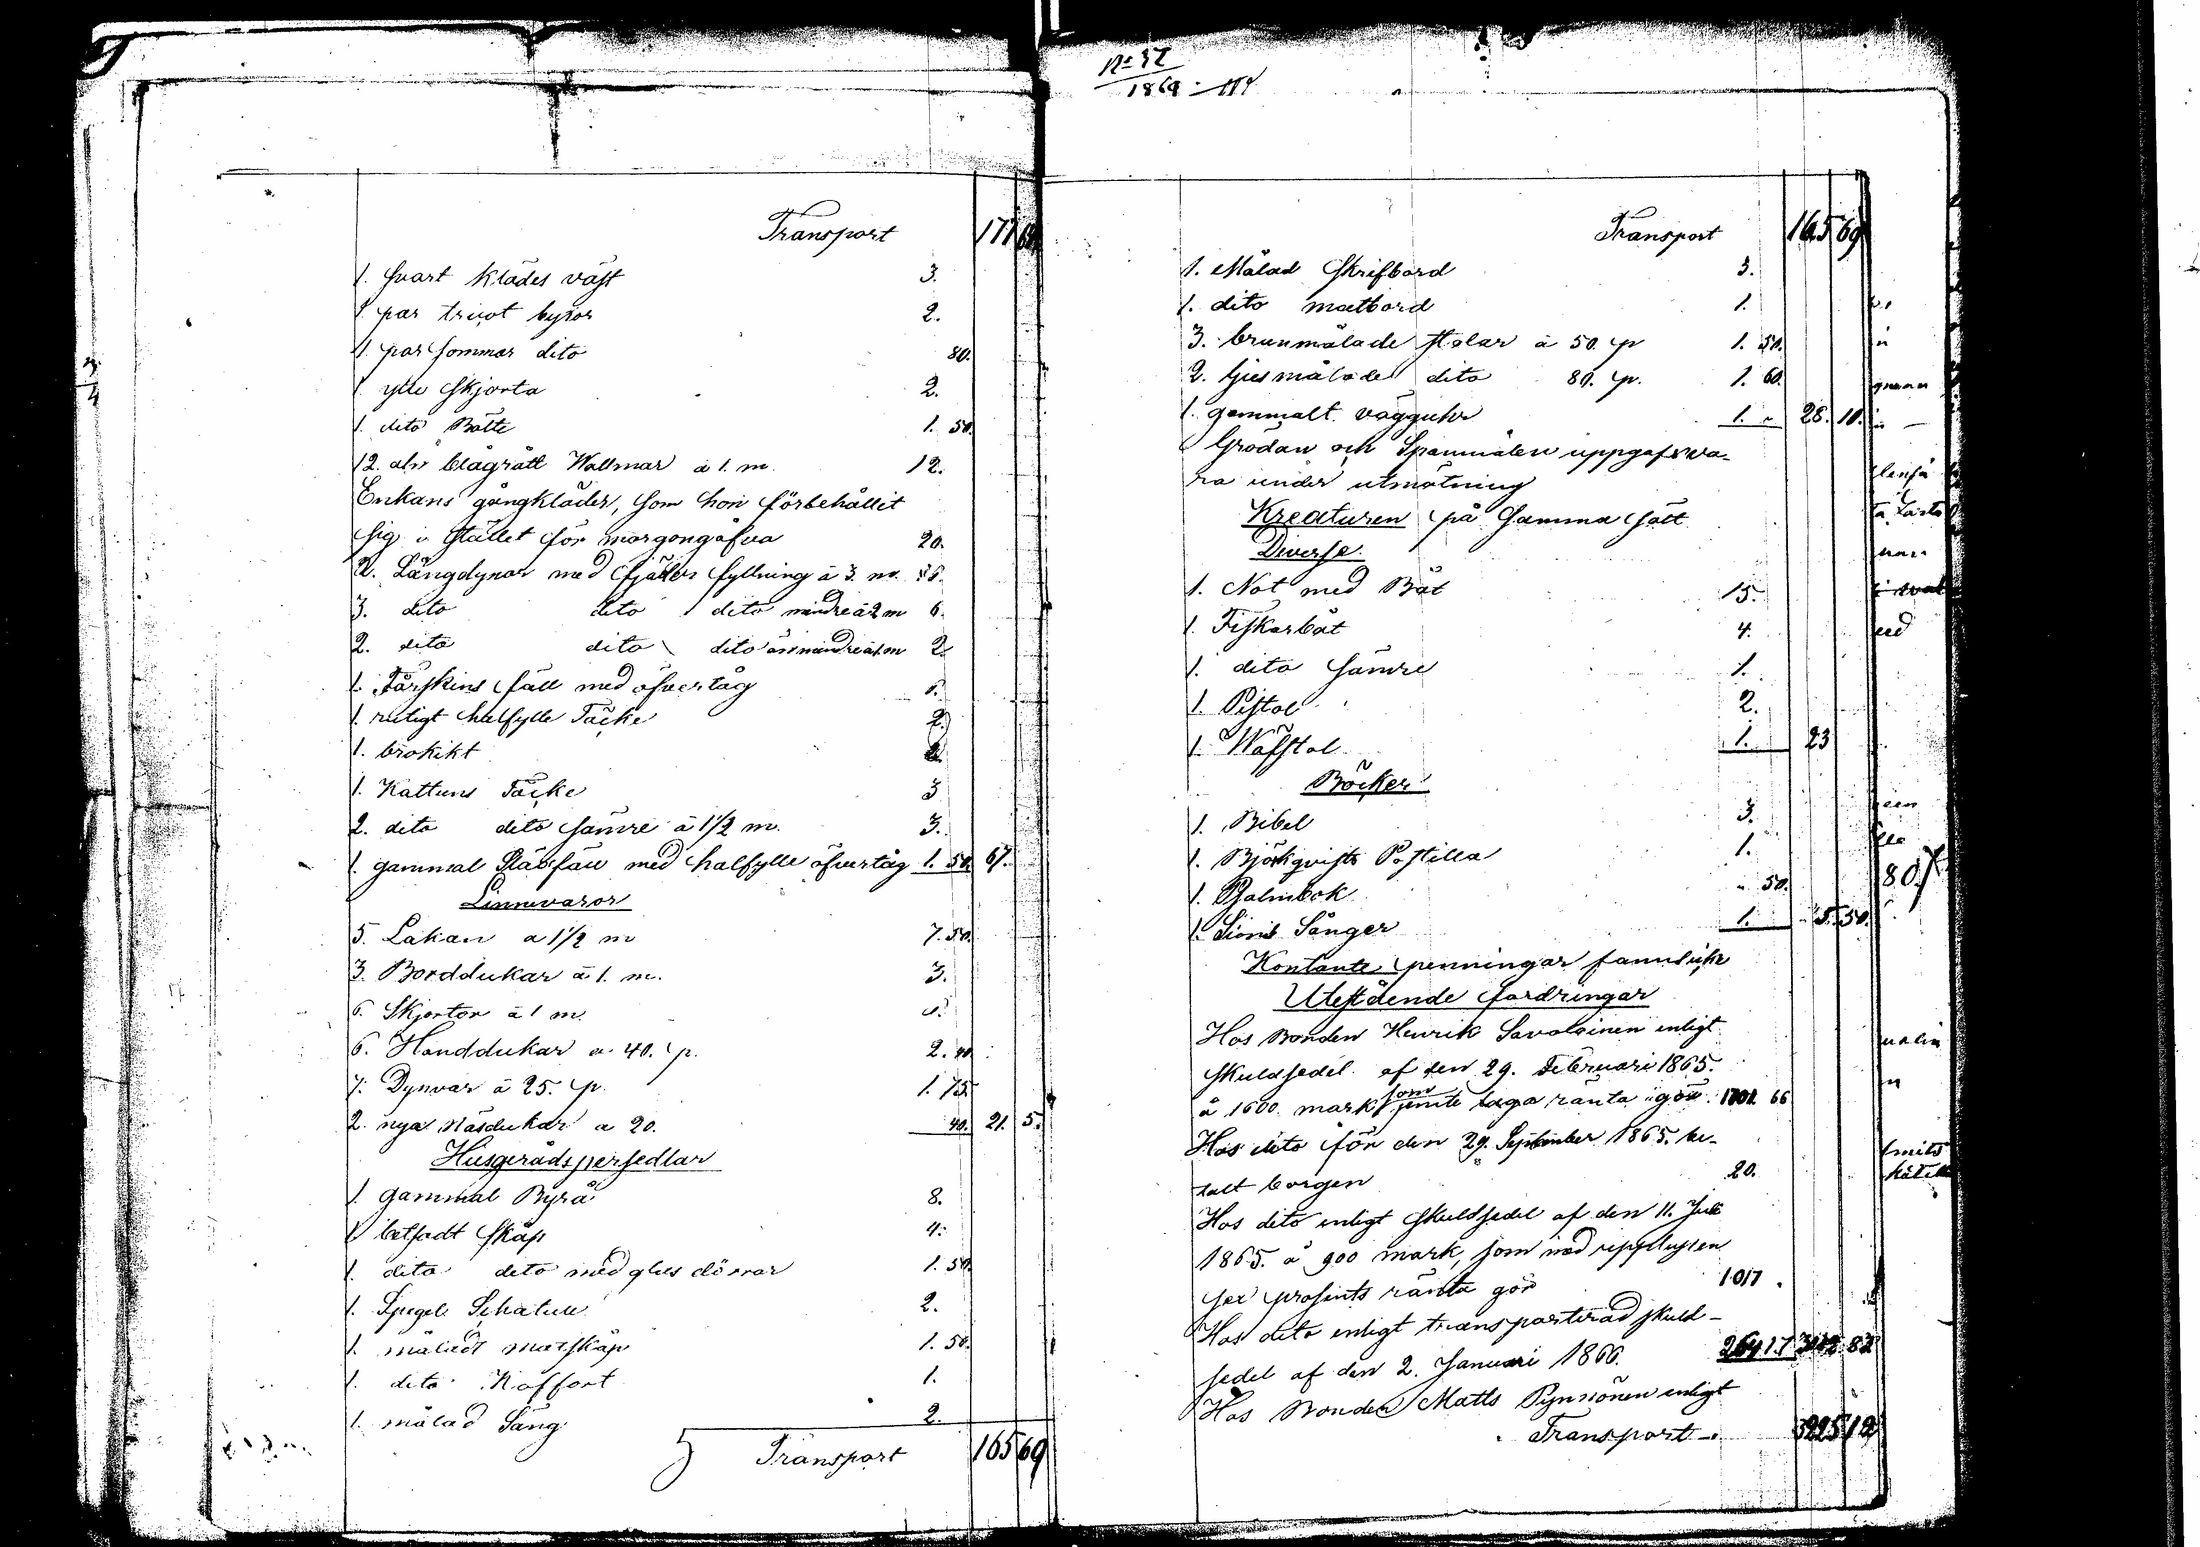 Transport 177 64
1. svart klädes väst 3.
1. par tricot byxor 2.
1. par sommar dito 80.
1 ylle skjorta 2.
1. dito Rätte 1. 50.
12. aln blågrått Wallmar à 1. m. 12.
Enkans gångkläder, som hon förbehållit
sig i stället för morgongåfva 20.
2. Långdynor med fjäder fyllning à 3. m.
3. dito dito dito mindre à 2 m 6.
2. dito dito dito än mindre à 1. m 2.
1. Fårskins fäll med öfvertåg
1. rutigt halfylle Täcke 2.
1. brokikt
1. Kattuns Täcke 3
2. dito dito sämre à 1 1/2 m. 3.
1. gammal Slädfäll med halfylle öfvertåg 1. 50. 67.
Linnevaror
5. Lakan a 1 1/2 m 7. 50.
3. Borddukar à 1. m. 3.
6. Skjortor à 1 m.
6. Handdukar a 40. p. 2. 40
7. Dynvar à 25. p. 1. 75
2. nya Näsdukar a 20. 40. 21. 5.
Husgerådspersedlar
1. gammal Byrå 8.
1 betsadt skåp 4.
1. dito dito med glas dörrar 1. 50.
1. Spegel Schatull 2.
1. måladt matskåp 1. 50.
1. dito Koffort 1.
1. målad Säng 2.
Transport 165 69
No 32
1869
Transport 165 69
1. Målad Skrifbord 3.
1. dito matbord 1.
3. brunmålade stolar à 50. p 1. 50.
2. ljusmålade dito 80. p. 1. 60.
1. gammalt vägguhr 1. 28. 10.
Grödan och Spanmålen uppgafs va-
ra under utmätning
Kreaturen på samma sätt
Diverse.
1. Not med Båt 15.
1. Fiskarbåt 4.
1. dito sämre 1.
1. Pistol 2.
1. Wäfstol 1. 23
Böcker
1. Bibel 3.
1. Björkqvists Postilla 1.
1. Psalmbok 50.
1. Sions Sånger 1. 5. 50.
Kontante penningar fanns icke
Utestående fordringar
Hos Bonden Henrik Savolainen enligt
skuldsedel af den 29. Februari 1865.
à 1600. mark som jemte laga ränta gör 1701. 66
Hos dito för den 29. September 1865. be-
talt borgen 20.
Hos dito enligt skuldsedel af den 11. Juli
1865. à 900 mark, som med upplupen
sex prosents ränta gör 1017.
Hos dito enligt transporterad skuld-
sedel af den 2. Januari 1866.
Hos Bonden Matts Pynnönen enligt
Transport 3225 12